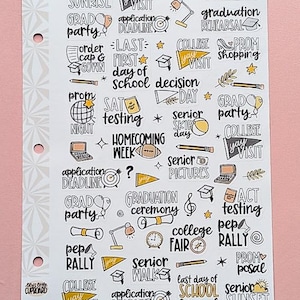 SUNRISE
VISIT
GRAD
party
application
DEADLINE
graduation
REHEARSAL
order
cap &
GOWN
LAST
FIRST
day of
SCHOOL
COLLEGE
VISIT
PROM
shopping
decision
DAY
prom
NIGHT
SAT
TESTING
senior
SKIP
DAY
GRAD
party
HOMECOMING
WEEK
COLLEGE
yay
VISIT
application
DEADLINE
?
senior
PICTURES
GRAD
party
GRADUATION
ceremony
ACT
testing
pep
RALLY
college
FAIR
pep
RALLY
senior
WALK
PROM
posal
COLLEGE
application
last day of
SCHOOL
senior